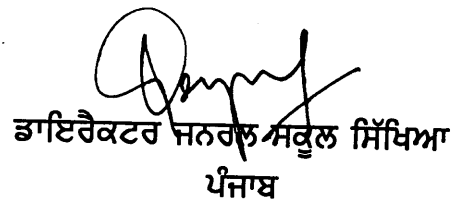 ਡਾਇਰੈਕਟਰ ਜਨਰਲ ਸਕੂਲ ਸਿੱਖਿਆ
ਪੰਜਾਬ